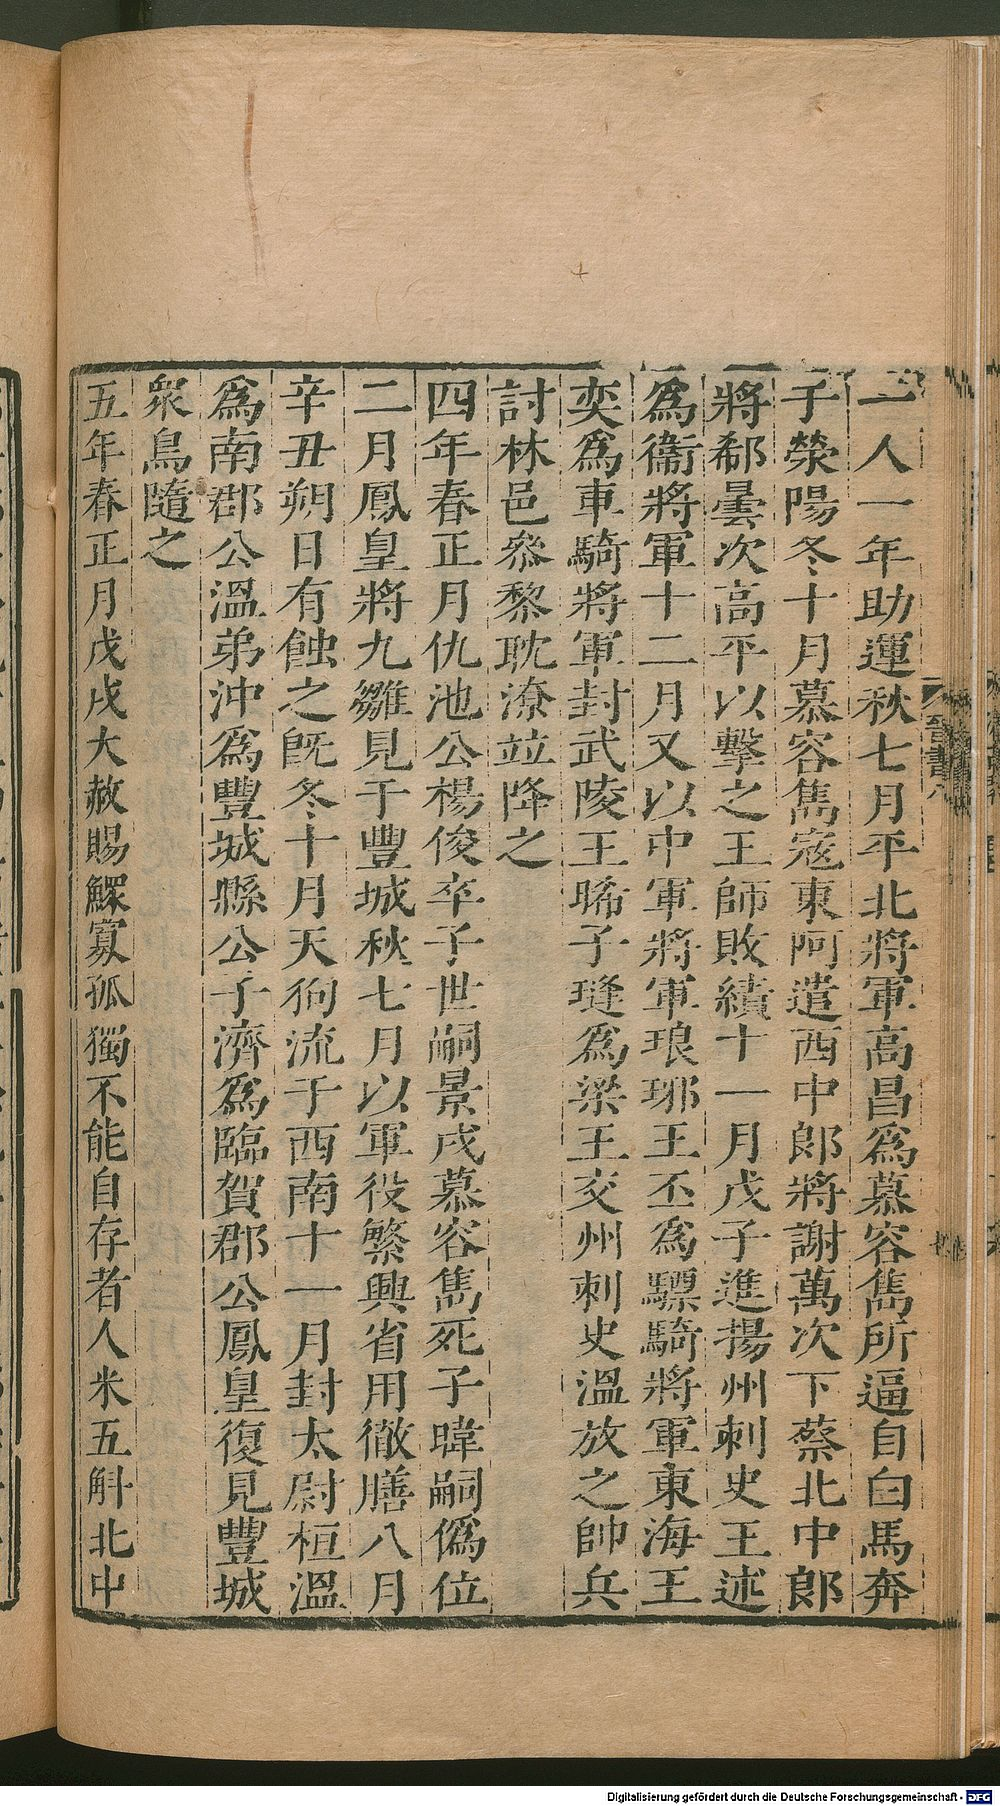 二人一年助運秋七月平北將軍高昌爲慕容雋所逼自白馬奔
于滎陽冬十月慕容雋寇東阿遣西中郎將謝萬次下蔡北中郎
將郗曇次高平以擊之王師敗績十一月戊子進揚州刺史王述
爲衞將軍十二月又以中軍將軍琅琊王丕爲驃騎將軍東海王
奕爲車騎將軍封武陵王晞子㻱爲梁王交州刺史溫放之帥兵
討林邑叅黎耽潦竝降之
四年春正月仇池公楊俊卒子世嗣景戌慕容雋死子暐嗣僞位
二月鳳皇將九雛見于豐城秋七月以軍役繁興省用徹膳八月
辛丑朔日有蝕之旣冬十月天狗流于西南十一月封太尉桓溫
爲南郡公溫弟沖爲豐城縣公子濟爲臨賀郡公鳳皇復見豐城
衆鳥隨之
五年春正月戊戌大赦賜鰥寡孤獨不能自存者人米五斛北中
晉書八
Digitalisierung gefördert durch die Deutsche Forschungsgemeinschaft - DFG